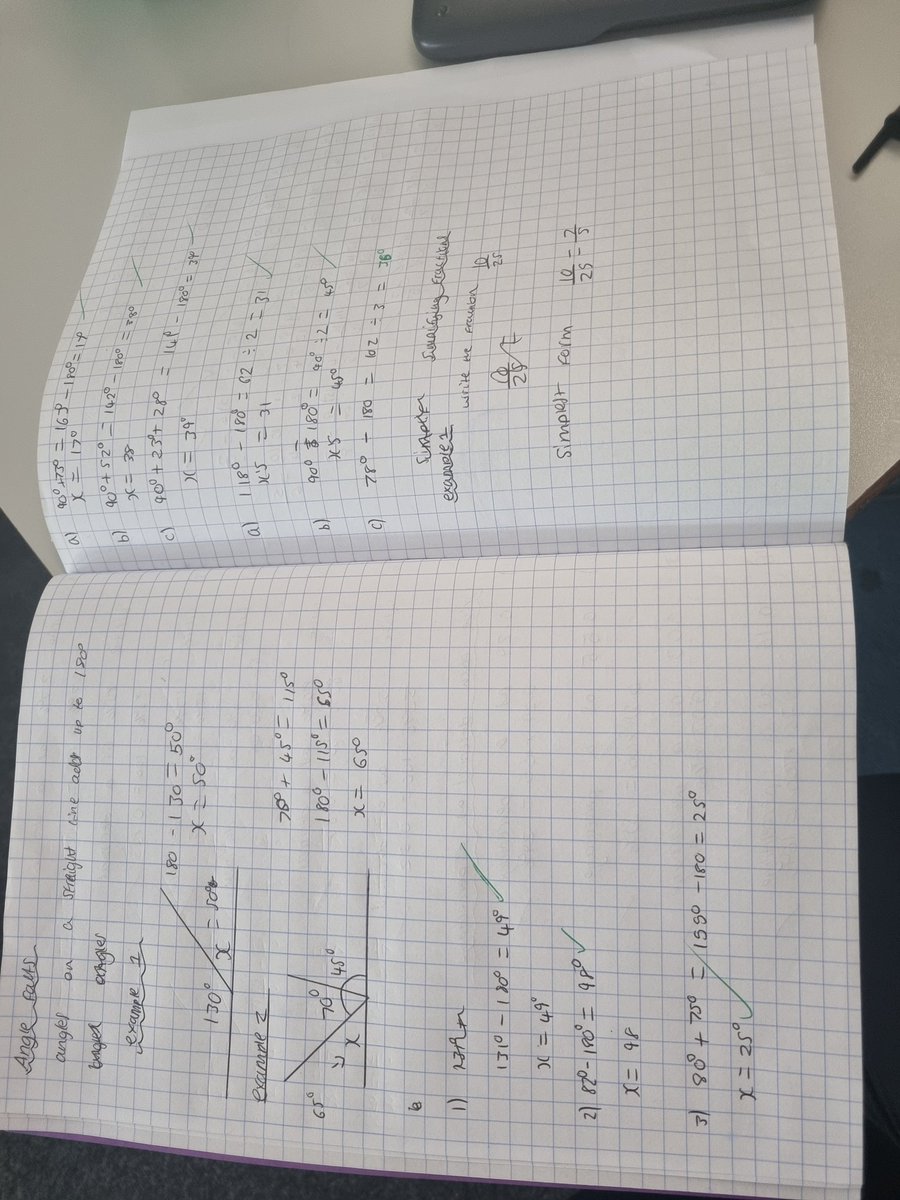 Angle facts
angles on a straight line add up to 180°
angles
example 1
130° x = 50°
180 - 130 = 50°
x = 50°
example 2
65° x 70° 45°
70° + 45° = 115°
180° - 115° = 65°
x = 65°
1)
131° - 180° = 49°
x = 49°
2) 82° - 180° = 98°
x = 98
3) 80° + 75° = 155° - 180 = 25°
x = 25°
a) 90° + 73° = 163° - 180° = 17°
x = 17°
b) 90° + 52° = 142° - 180° = 38°
x = 38
c) = 141° - 180° = 39°
x = 39°
a) 118° - 180° = 62 ÷ 2 = 31
= 31
b) 90° 180° = 90° ÷ 2 = 45°
= 45°
c) 78° - 180 = 102 ÷ 3 =
example 1
write the fraction 10/25
10/25
Simplest form 10/25 = 2/5